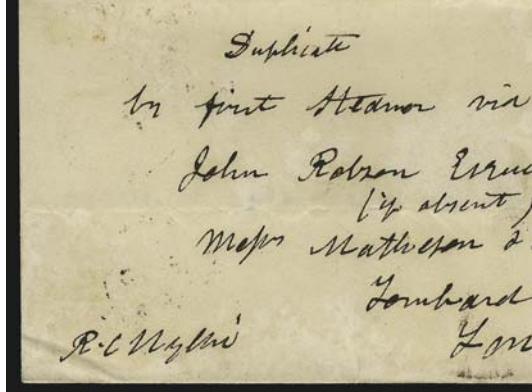 Duplicate
by first Steamer via
John Robson Esqui
(if absent)
Messrs Matheson &
Lombard
Lon